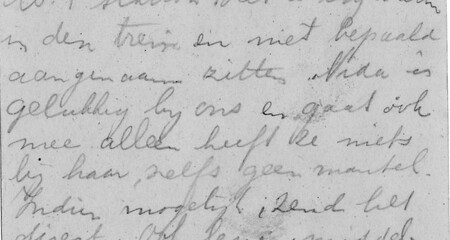 in den trein en niet bepaald
aangenaam zitten. Nida is
gelukkig by ons en gaat ook
mee alleen heeft ze niets
bij haar, zelfs geen mantel.
Indien mogelijk, zend het
direct